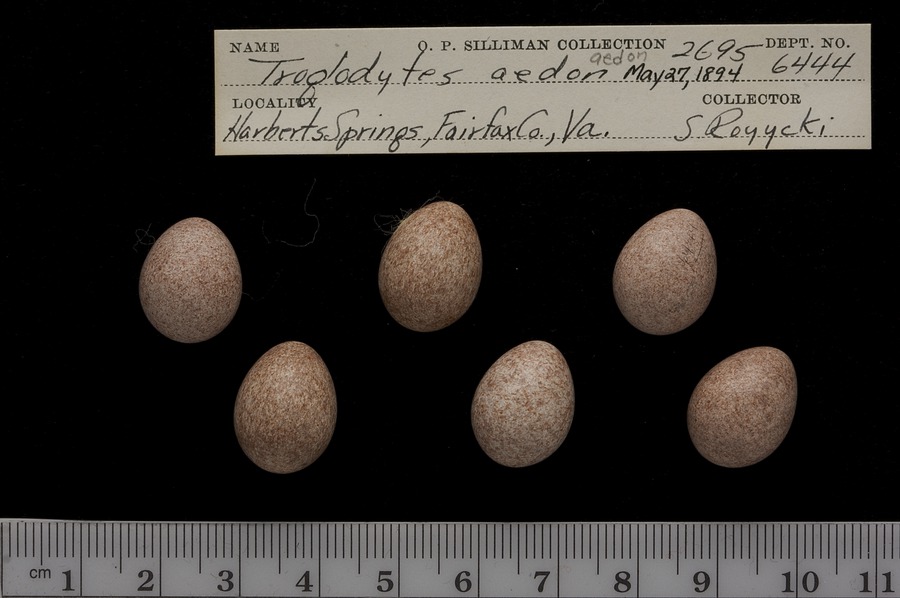 NAME O. P. SILLIMAN COLLECTION 2695 DEPT. NO.
aedon
Troglodytes aedon May 27, 1894 6444
LOCALITY COLLECTOR
Harberts Springs, Fairfax Co., Va. S Royycki
cm 1 2 3 4 5 6 7 8 9 10 11